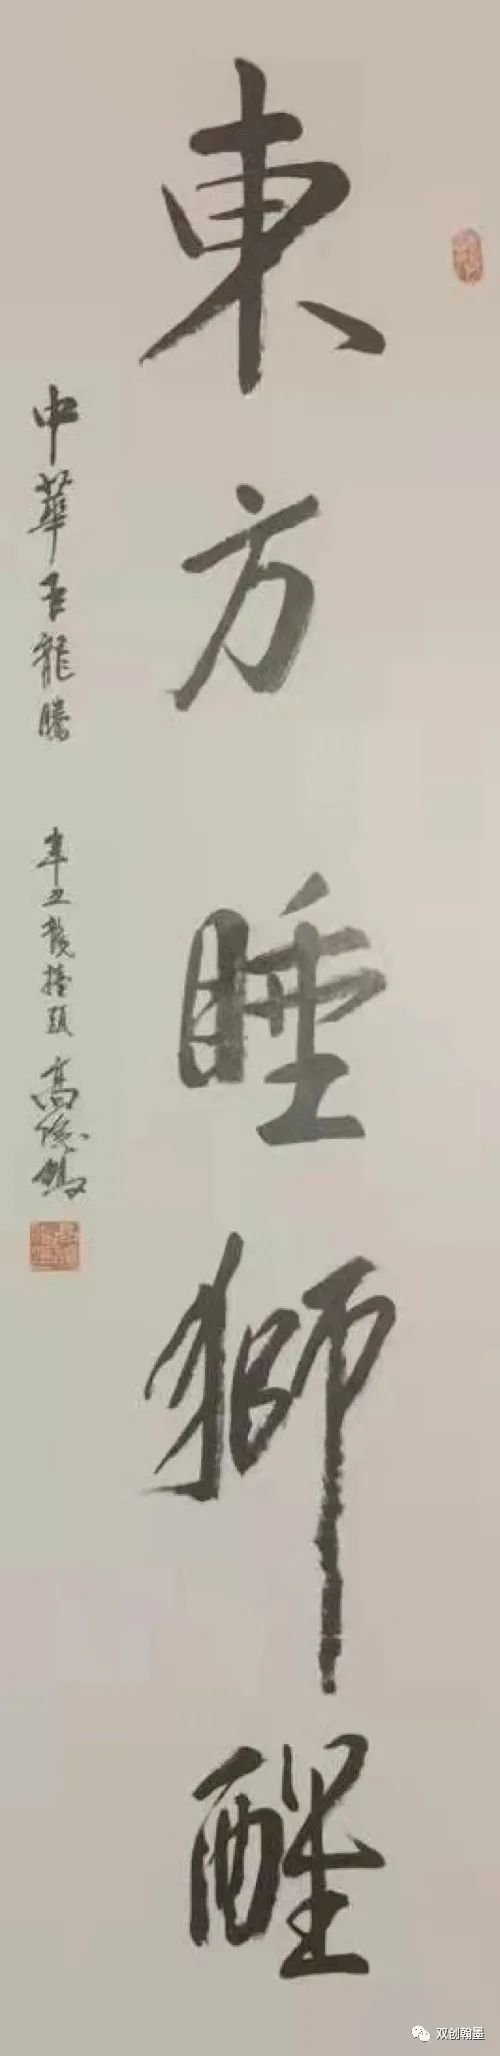 東方睡獅醒
中華巨龍騰
辛丑龍抬頭 高德
双创翰墨